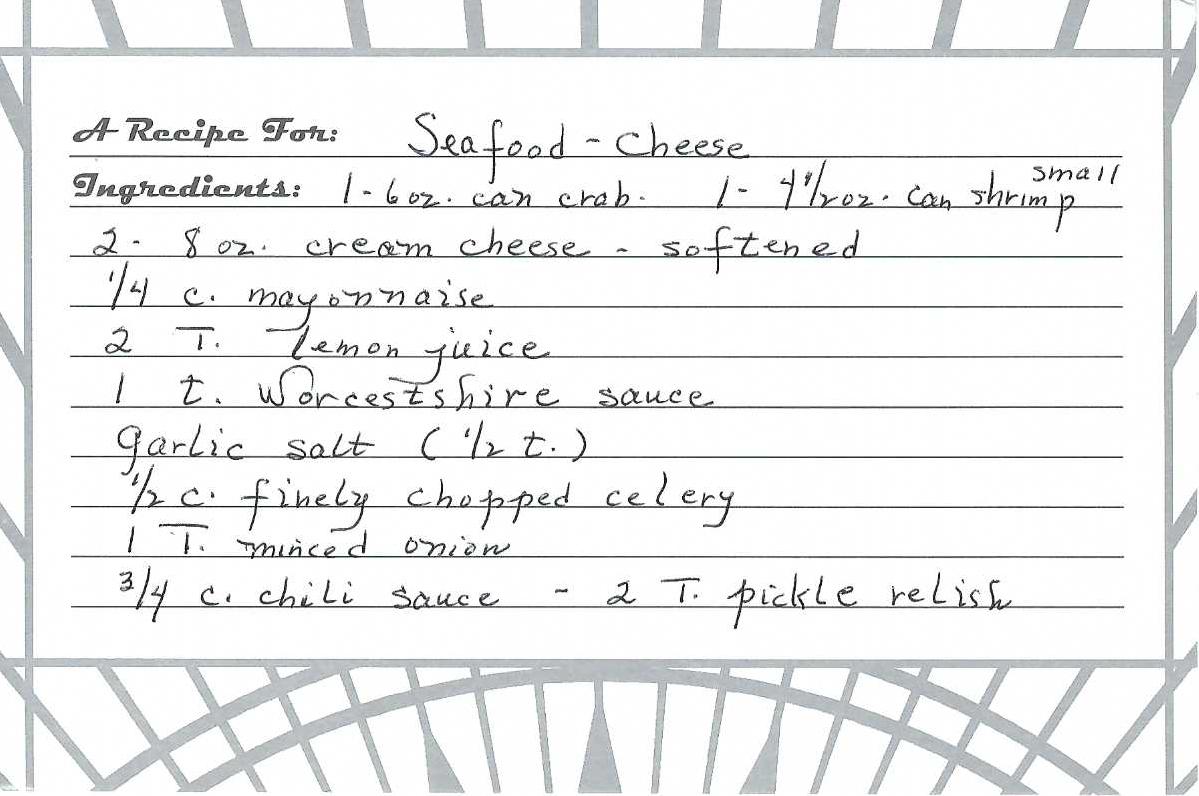 A Recipe For: Seafood - Cheese
Ingredients: 1 - 6 oz. can crab. 1 - 4 1/2 oz. can small shrimp
2 - 8 oz. cream cheese - softened
1/4 c. mayonnaise
2 T. lemon juice
1 t. Worcestshire sauce
garlic salt (1/2 t.)
1/2 c. finely chopped celery
1 T. minced onion
3/4 c. chili sauce - 2 T. pickle relish